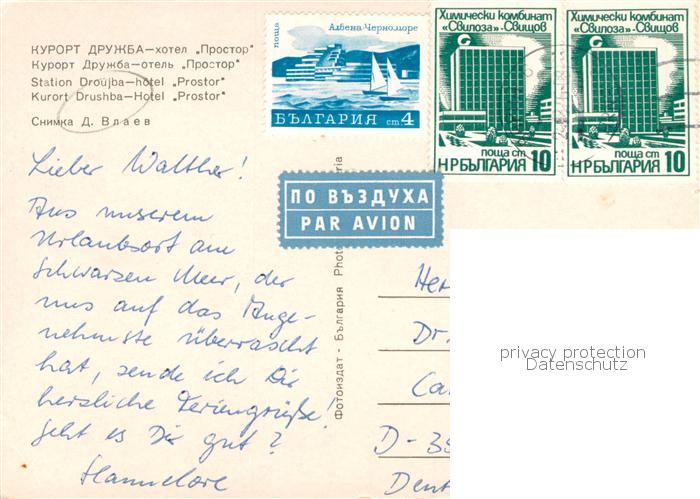 КУРОРТ ДРУЖБА—хотел „Простор"
Курорт Дружба—отель „Простор"
Station Droujba—hôtel „Prostor"
Kurort Drushba—Hotel „Prostor"
Снимка Д. Влаев
поща
Албена-Черноморе
БЪЛГАРИЯ ст 4
Химически комбинат
„Свилоза"-Свищов
поща ст
НРБЪЛГАРИЯ 10
Химически комбинат
„Свилоза"-Свищов
поща ст
НРБЪЛГАРИЯ 10
ПО ВЪЗДУХА
PAR AVION
Lieber Walther!
Aus unserem
Urlaubsort am
Schwarzen Meer, der
uns auf das Ange-
nehmste überrascht
hat, sende ich Dir
herzliche Feriengrüße!
Geht es Dir gut?
Hannelore
Фотоиздат - България Photo
Her
Dr.
Ca
D-35
Deut
privacy protection
Datenschutz